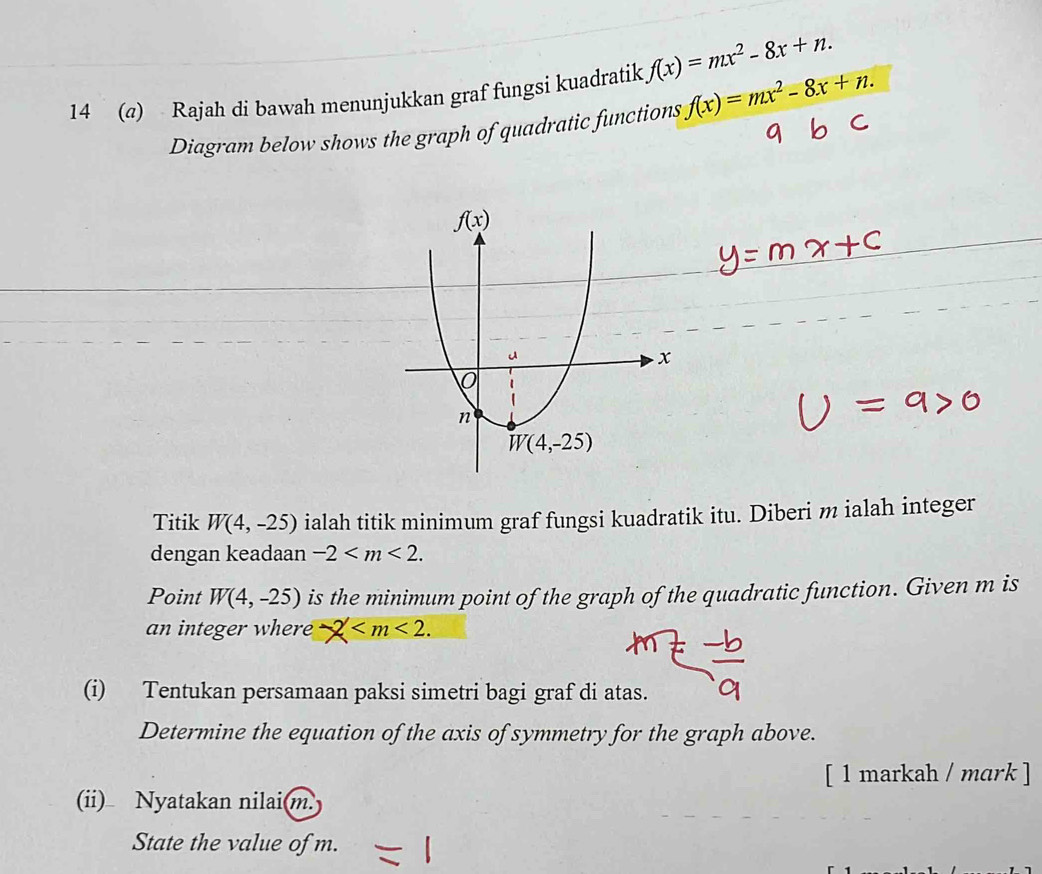 14 (a) Rajah di bawah menunjukkan graf fungsi kuadratik f(x) = mx² - 8x + n.
Diagram below shows the graph of quadratic functions f(x) = mx² - 8x + n.
a b c
f(x)
y = mx + c
u
x
O
U = a > 0
n
W(4,-25)
Titik W(4, -25) ialah titik minimum graf fungsi kuadratik itu. Diberi m ialah integer
dengan keadaan −2 < m < 2.
Point W(4, -25) is the minimum point of the graph of the quadratic function. Given m is
an integer where -2 < m < 2.
m = -b/a
(i) Tentukan persamaan paksi simetri bagi graf di atas.
Determine the equation of the axis of symmetry for the graph above.
[ 1 markah / mark ]
(ii) Nyatakan nilai m.
State the value of m. = 1